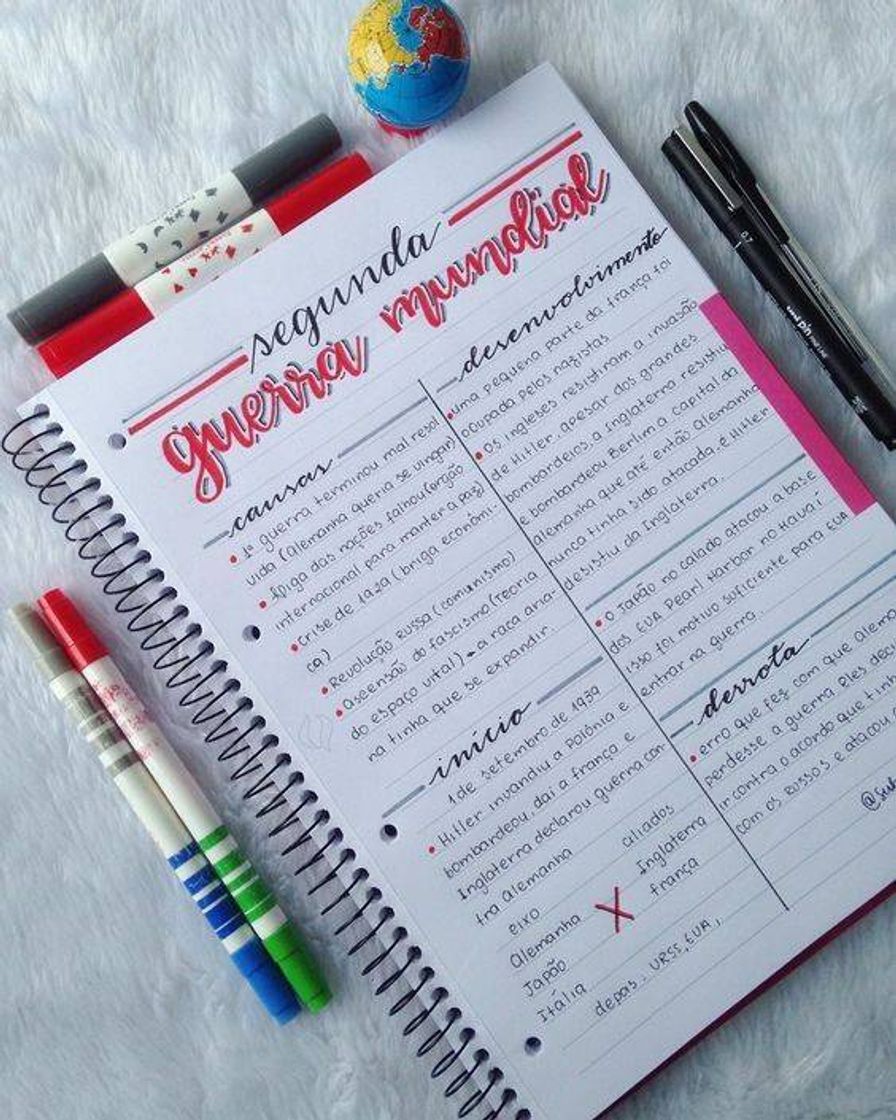 segunda
guerra mundial
causas
• 1ª guerra terminou mal resol
vida (Alemanha queria se vingar)
• A liga das nações falhou (órgão
internacional para manter a paz)
• Crise de 1929 (briga econômi-
ca)
• Revolução Russa (comunismo)
• Ascensão do fascismo (Teoria
do espaço vital) → a raça aria-
na tinha que se expandir.
início
1 de setembro de 1939
• Hitler invandiu a Polônia e
bombardeou, daí a frança e
Inglaterra declarou guerra con-
tra Alemanha
eixo
aliados
Alemanha X Inglaterra
Japão
frança
Itália
depas. URSS, EUA,
desenvolvimento
• uma pequena parte da frança foi
ocupada pelos nazistas
• Os ingleses resistiram a invasão
de Hitler, apesar dos grandes
bombardeios, a Inglaterra resistiu
e bombardeou Berlim a capital da
Alemanha que até então Alemanha
nunca tinha sido atacada. E Hitler
desistiu da Inglaterra.
• O Japão no calado atacou a base
dos EUA Pearl Harbor no Havaí
isso foi motivo suficiente para EUA
entrar na guerra.
derrota
• erro que fez com que
perdesse a guerra Eles
ir contra o acordo que
com os Russos e atacou
0.7
uni pin FINE LINE